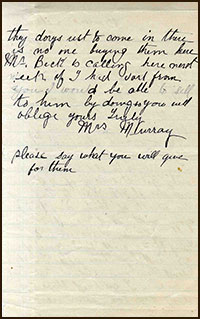 they dorys ust to come in thir
is no one buying them here
Mr. Beck is calling here next
week if I had word from
you I would be able to sell
to him by doing so you will
oblige yours Truly
Mrs Murray
please say what you will give
for them